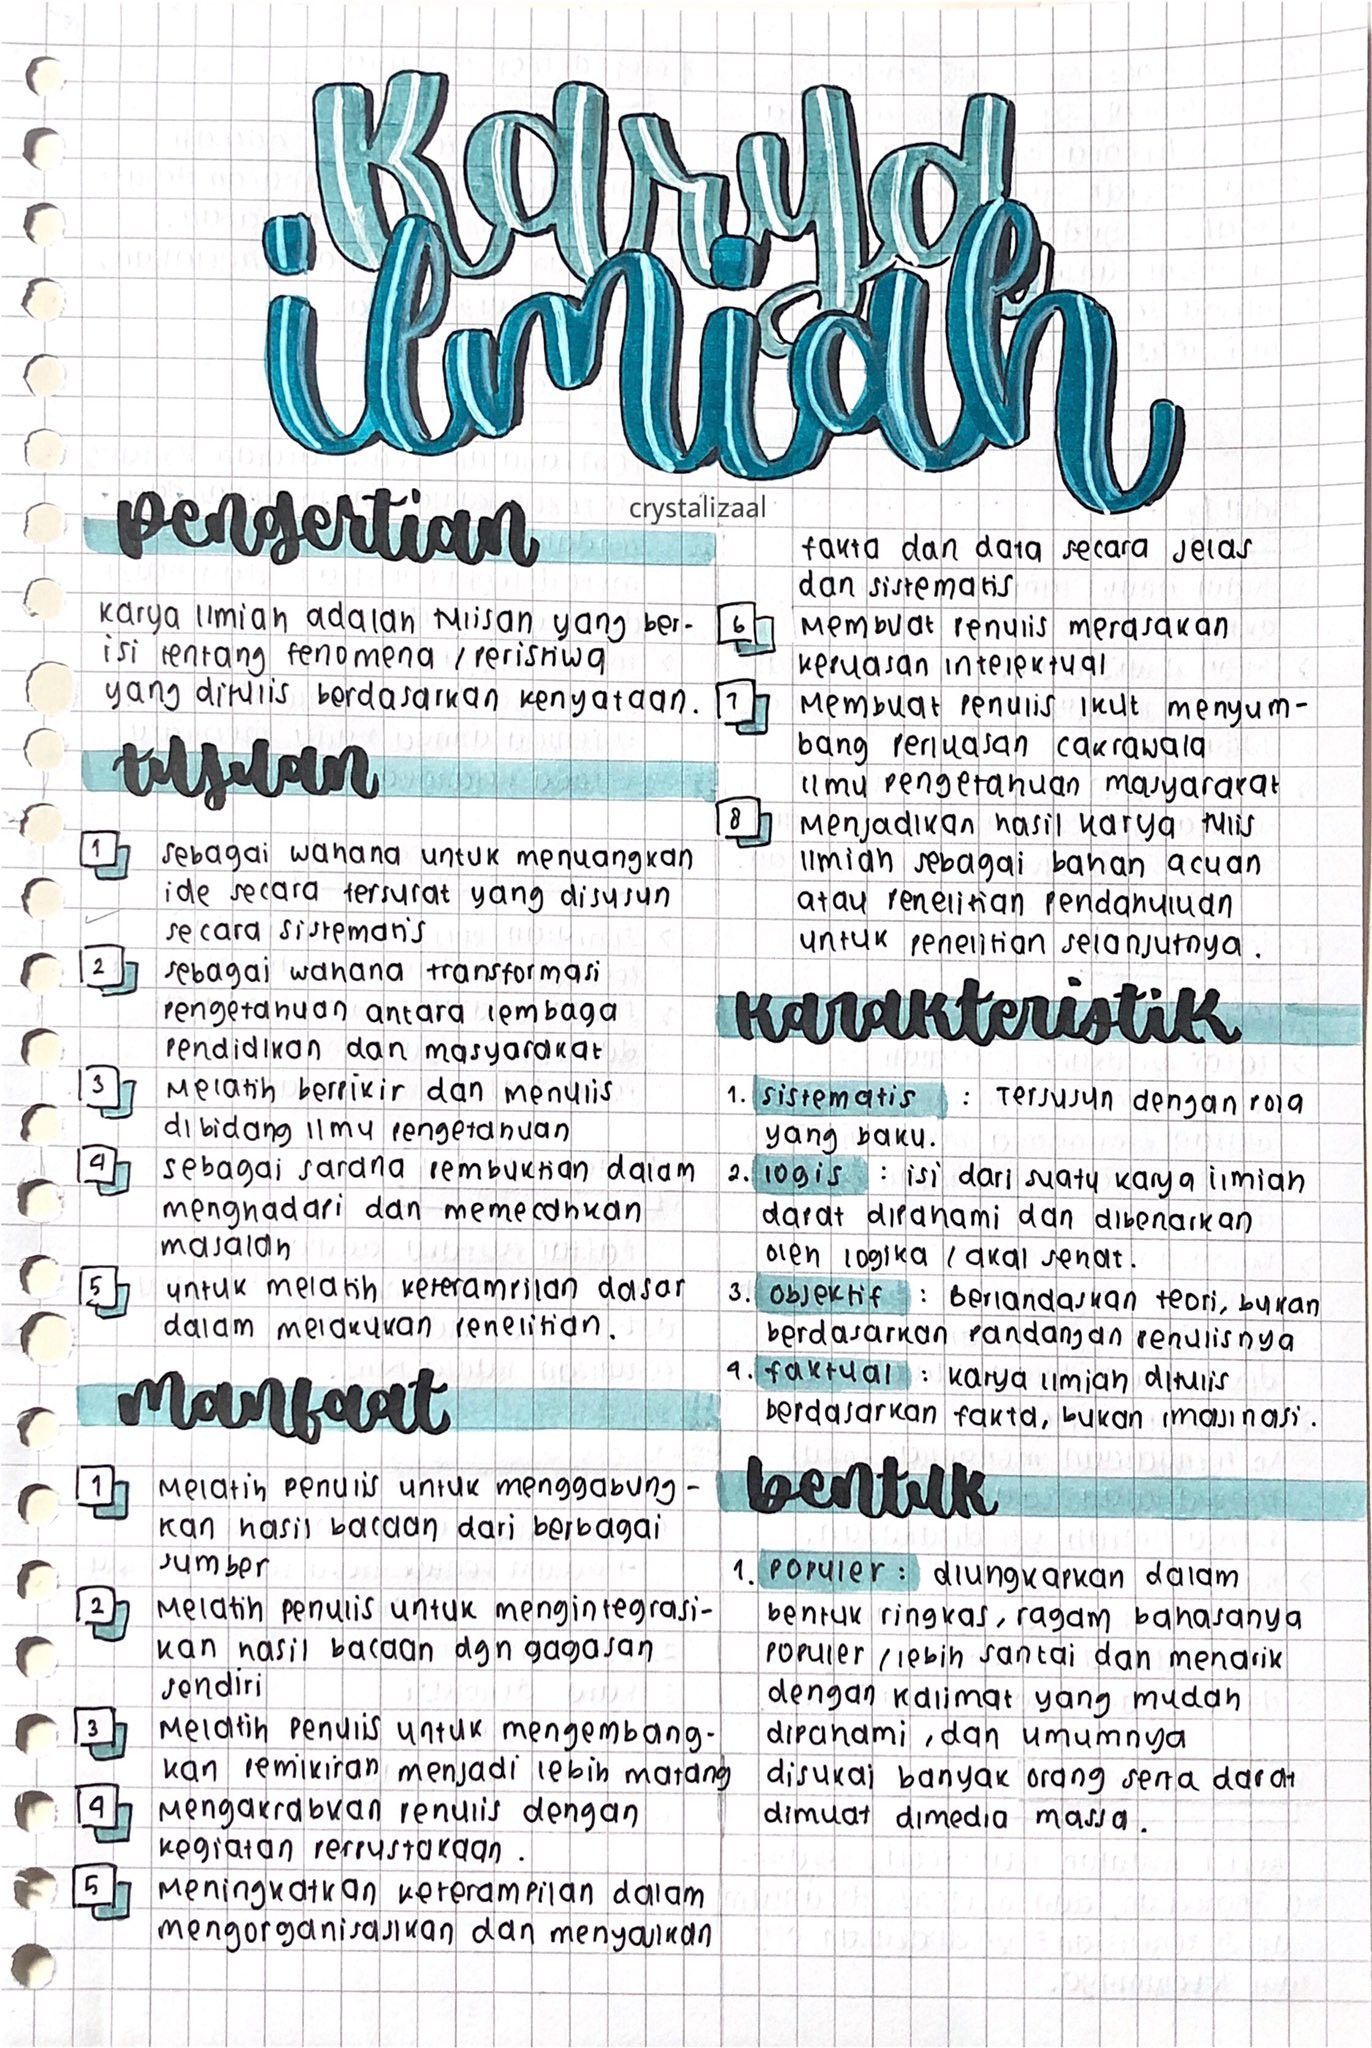 Karya
ilmiah
crystalizaal
pengertian
Karya Ilmiah adalah tulisan yang ber-
isi tentang fenomena / peristiwa
yang ditulis berdasarkan kenyataan.
tujuan
1 sebagai wahana untuk menuangkan
ide secara tersurat yang disusun
secara sistematis
2 sebagai wahana transformasi
pengetahuan antara lembaga
pendidikan dan masyarakat
3 Melatih berpikir dan menulis
dibidang ilmu pengetahuan
4 sebagai sarana pembuktian dalam
menghadapi dan memecahkan
masalah
5 untuk melatih keterampilan dasar
dalam melakukan penelitian.
manfaat
1 Melatih penulis untuk menggabung-
kan hasil bacaan dari berbagai
sumber
2 Melatih penulis untuk mengintegrasi-
kan hasil bacaan dgn gagasan
sendiri
3 Melatih penulis untuk mengembang-
kan pemikiran menjadi lebih matang
4 Mengakrabkan penulis dengan
kegiatan perpustakaan.
5 Meningkatkan keterampilan dalam
mengorganisasikan dan menyajikan
fakta dan data secara jelas
dan sistematis
6 Membuat penulis merasakan
kepuasan intelektual
7 Membuat penulis ikut menyum-
bang perluasan cakrawala
ilmu pengetahuan masyararat
8 Menjadikan hasil karya tulis
ilmiah sebagai bahan acuan
atau penelitian pendahuluan
untuk penelitian selanjutnya.
karakteristik
1. sistematis : Tersusun dengan pola
yang baku.
2. logis : isi dari suatu karya ilmiah
dapat dipahami dan dibenarkan
oleh logika / akal sehat.
3. objektif : Berlandaskan teori, bukan
berdasarkan pandangan penulisnya
4. faktual : karya ilmiah ditulis
berdasarkan fakta, bukan imajinasi.
bentuk
1. populer : diungkapkan dalam
bentuk ringkas, ragam bahasanya
populer / lebih santai dan menarik
dengan kalimat yang mudah
dipahami, dan umumnya
disukai banyak orang serta dapat
dimuat dimedia massa.